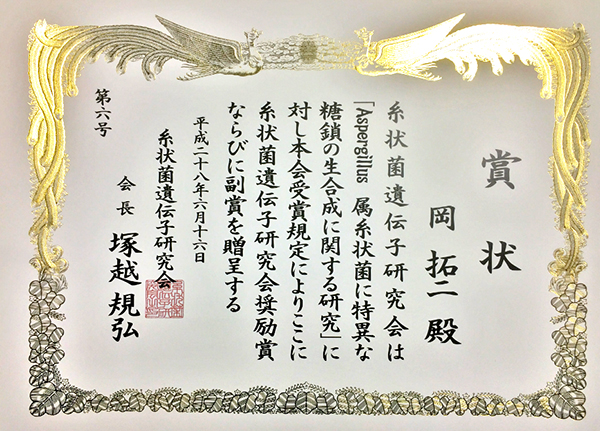 賞状
岡拓二殿
糸状菌遺伝子研究会は
「Aspergillus 属糸状菌に特異な
糖鎖の生合成に関する研究」に
対し本会受賞規定によりここに
糸状菌遺伝子研究会奨励賞
ならびに副賞を贈呈する
平成二十八年六月十六日
糸状菌遺伝子研究会
会長 塚越規弘
第六号